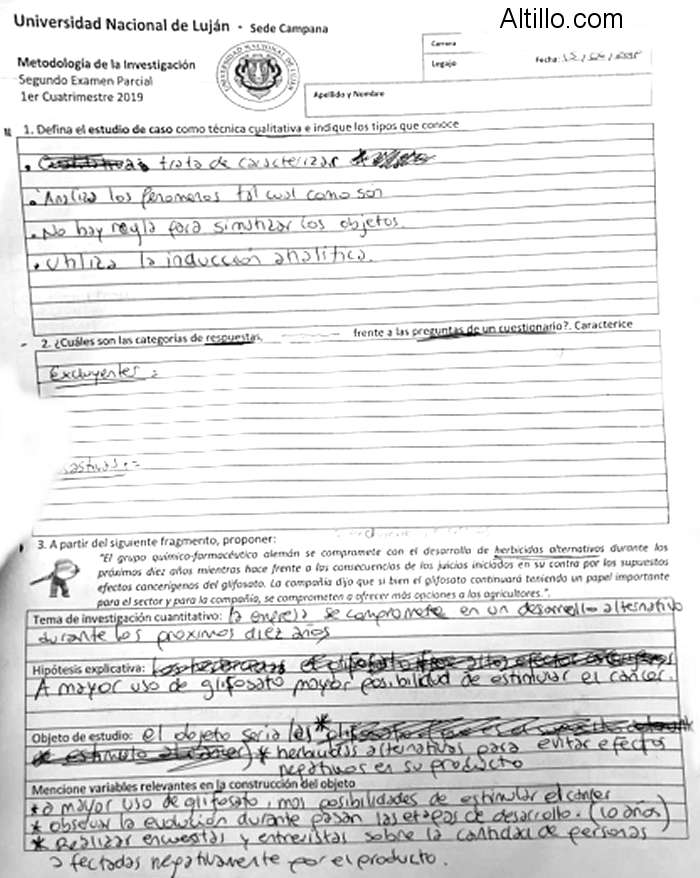 Altillo.com
Universidad Nacional de Luján - Sede Campana
Metodología de la Investigación
Segundo Examen Parcial
1er Cuatrimestre 2019
UNIVERSIDAD NACIONAL DE LUJAN
Carrera
Legajo
Fecha:
Apellido y Nombre
1. Defina el estudio de caso como técnica cualitativa e indique los tipos que conoce
• trata de caracterizar
• Analiza los fenomenos tal cual como son
• No hay regla para simatizar los objetos.
• Utiliza la inducción analítica.
2. ¿Cuáles son las categorías de respuestas, frente a las preguntas de un cuestionario?. Caracterice
Excluyentes =
3. A partir del siguiente fragmento, proponer:
"El grupo químico-farmacéutico alemán se compromete con el desarrollo de herbicidas alternativos durante los
próximos diez años mientras hace frente a las consecuencias de los juicios iniciados en su contra por los supuestos
efectos cancerígenos del glifosato. La compañía dijo que si bien el glifosato continuará teniendo un papel importante
para el sector y para la compañía, se comprometen a ofrecer más opciones a los agricultores.".
Tema de investigación cuantitativo: la empresa se compromete en un desarrollo alternativo
durante los proximos diez años
Hipótesis explicativa:
A mayor uso de glifosato mayor posibilidad de estimular el cáncer.
Objeto de estudio: el objeto seria las *
* herbicidas alternativas para evitar efectos
negativos en su producto
Mencione variables relevantes en la construcción del objeto
* a mayor uso de glifosato, mas posibilidades de estimular el cáncer
* observar la evolución durante pasan las etapas de desarrollo. (10 años)
* Realizar encuestas y entrevistas sobre la cantidad de personas
afectadas negativamente por el producto.